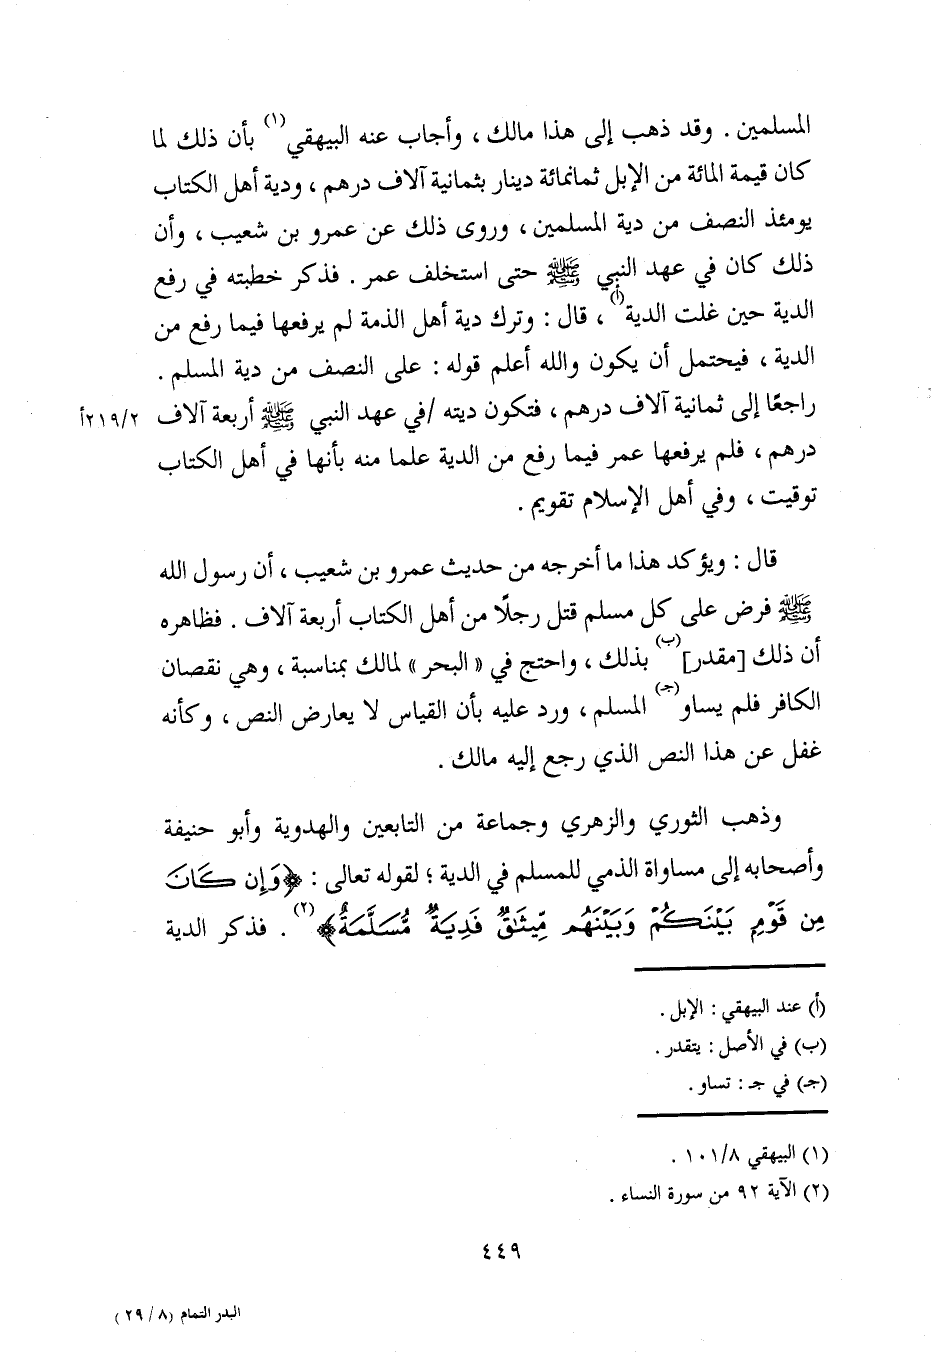 المسلمين . وقد ذهب إلى هذا مالك ، وأجاب عنه البيهقي(١) بأن ذلك لما
كان قيمة المائة من الإبل ثمانمائة دينار بثمانية آلاف درهم ، ودية أهل الكتاب
يومئذ النصف من دية المسلمين ، وروى ذلك عن عمرو بن شعيب ، وأن
ذلك كان في عهد النبي ﷺ حتى استخلف عمر . فذكر خطبته في رفع
الدية حين غلت الدية(أ) ، قال : وترك دية أهل الذمة لم يرفعها فيما رفع من
الدية ، فيحتمل أن يكون والله أعلم قوله : على النصف من دية المسلم .
راجعًا إلى ثمانية آلاف درهم ، فتكون ديته /في عهد النبي ﷺ أربعة آلاف ٢١٩/٢أ
درهم ، فلم يرفعها عمر فيما رفع من الدية علما منه بأنها في أهل الكتاب
توقيت ، وفي أهل الإسلام تقويم .
قال : ويؤكد هذا ما أخرجه من حديث عمرو بن شعيب ، أن رسول الله
ﷺ فرض على كل مسلم قتل رجلًا من أهل الكتاب أربعة آلاف . فظاهره
أن ذلك [مقدر](ب) بذلك ، واحتج في « البحر » لمالك بمناسبة ، وهي نقصان
الكافر فلم يساو(جـ) المسلم ، ورد عليه بأن القياس لا يعارض النص ، وكأنه
غفل عن هذا النص الذي رجع إليه مالك .
وذهب الثوري والزهري وجماعة من التابعين والهدوية وأبو حنيفة
وأصحابه إلى مساواة الذمي للمسلم في الدية ؛ لقوله تعالى : ﴿وَإِن كَانَ
مِن قَوْمٍ بَيْنَكُمْ وَبَيْنَهُم مِّيثَٰقٌ فَدِيَةٌ مُّسَلَّمَةٌ﴾(٢) . فذكر الدية
(أ) عند البيهقي : الإبل .
(ب) في الأصل : يتقدر .
(جـ) في جـ : تساو .
(١) البيهقي ١٠١/٨ .
(٢) الآية ٩٢ من سورة النساء .
٤٤٩
البدر التمام (٢٩/٨)